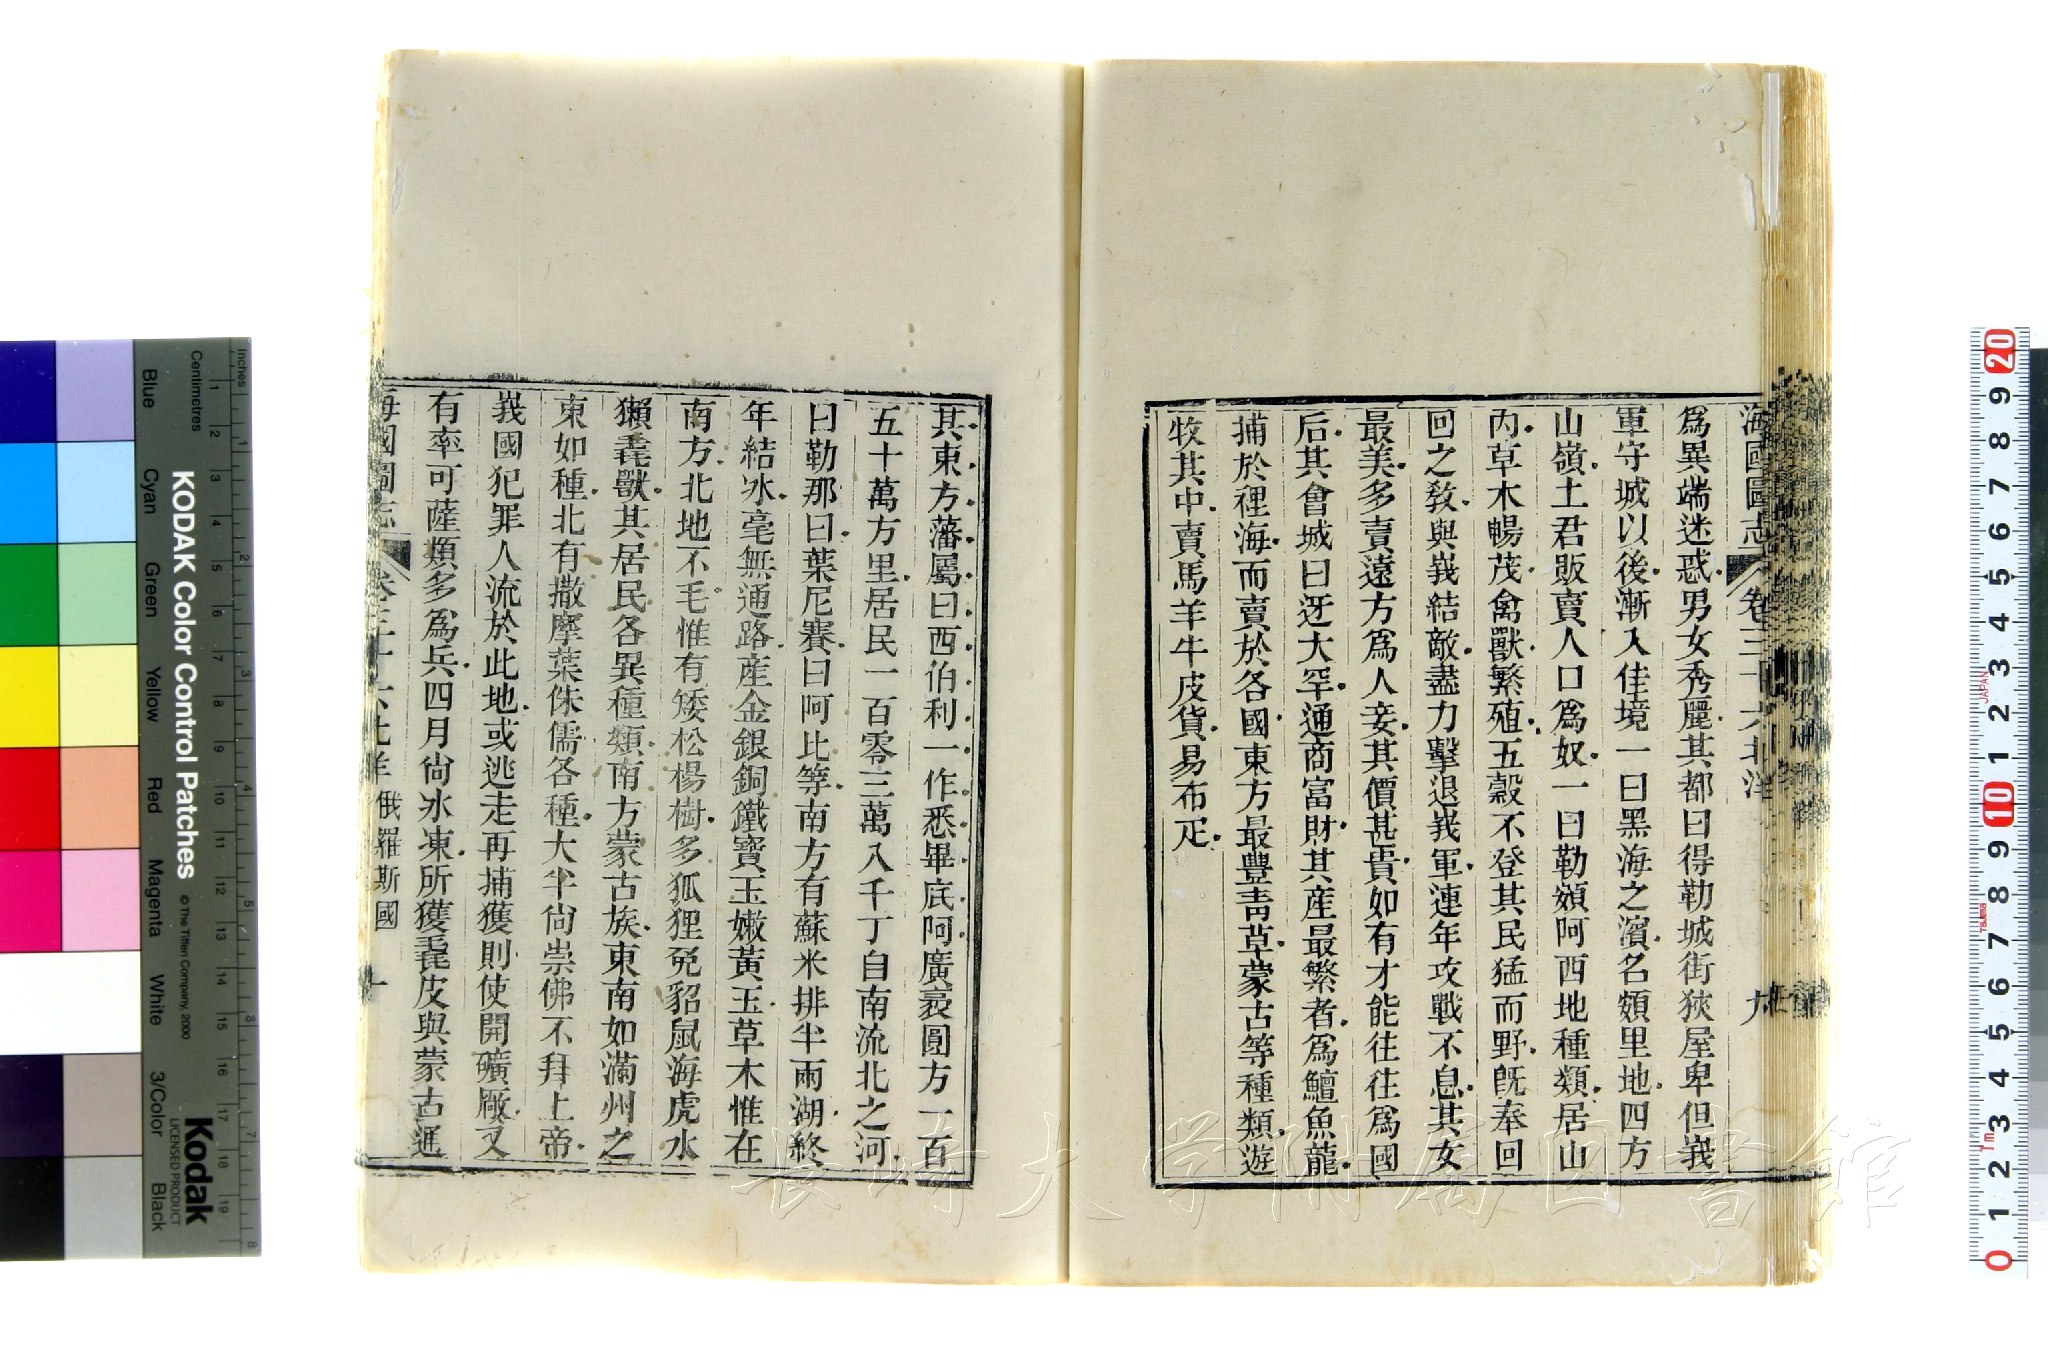 海國圖志 卷三十六 北洋 九
爲異端迷惑男女秀麗其都曰得勒城街狹屋卑但峩
軍守城以後漸入佳境一曰黑海之濱名頟里地四方
山嶺土君販賣人口爲奴一曰勒頟阿西地種類居山
內草木暢茂禽獸繁殖五穀不登其民猛而野旣奉回
回之敎與峩結敵盡力擊退峩軍連年攻戰不息其女
最美多賣遠方爲人妾其價甚貴如有才能往往爲國
后其會城曰迓大罕通商富財其產最繁者爲鱣魚龍
捕於裡海而賣於各國東方最豐靑草蒙古等種類遊
牧其中賣馬羊牛皮貨易布疋
其東方藩屬曰西伯利一作悉畢底阿廣袤圓方一百
五十萬方里居民一百零三萬入千丁自南流北之河
曰勒那曰葉尼賽曰阿比等南方有蘇米排半兩湖終
年結冰毫無通路產金銀銅鐵寶玉嫩黃玉草木惟在
南方北地不毛惟有矮松楊樹多狐狸兔貂鼠海虎水
獺毳獸其居民各異種類南方蒙古族東南如滿州之
東如種北有撒摩葉侏儒各種大半尙崇佛不拜上帝
峩國犯罪人流於此地或逃走再捕獲則使開礦厰又
有率可薩類多爲兵四月尙冰凍所獲毳皮與蒙古通
海國圖志 卷三十六 北洋 俄羅斯國 十
KODAK Color Control Patches © The Tiffen Company, 2000
Kodak
LICENSED PRODUCT
Inches
Centimetres
Blue Cyan Green Yellow Red Magenta White 3/Color Black
1 2 3 4 5 6 7 8
1 2 3 4 5 6 7 8 9 10 11 12 13 14 15 16 17 18 19
20 9 8 7 6 5 4 3 2 1 10 9 8 7 6 5 4 3 2 1 0
JAPAN
長崎大学附属図書館